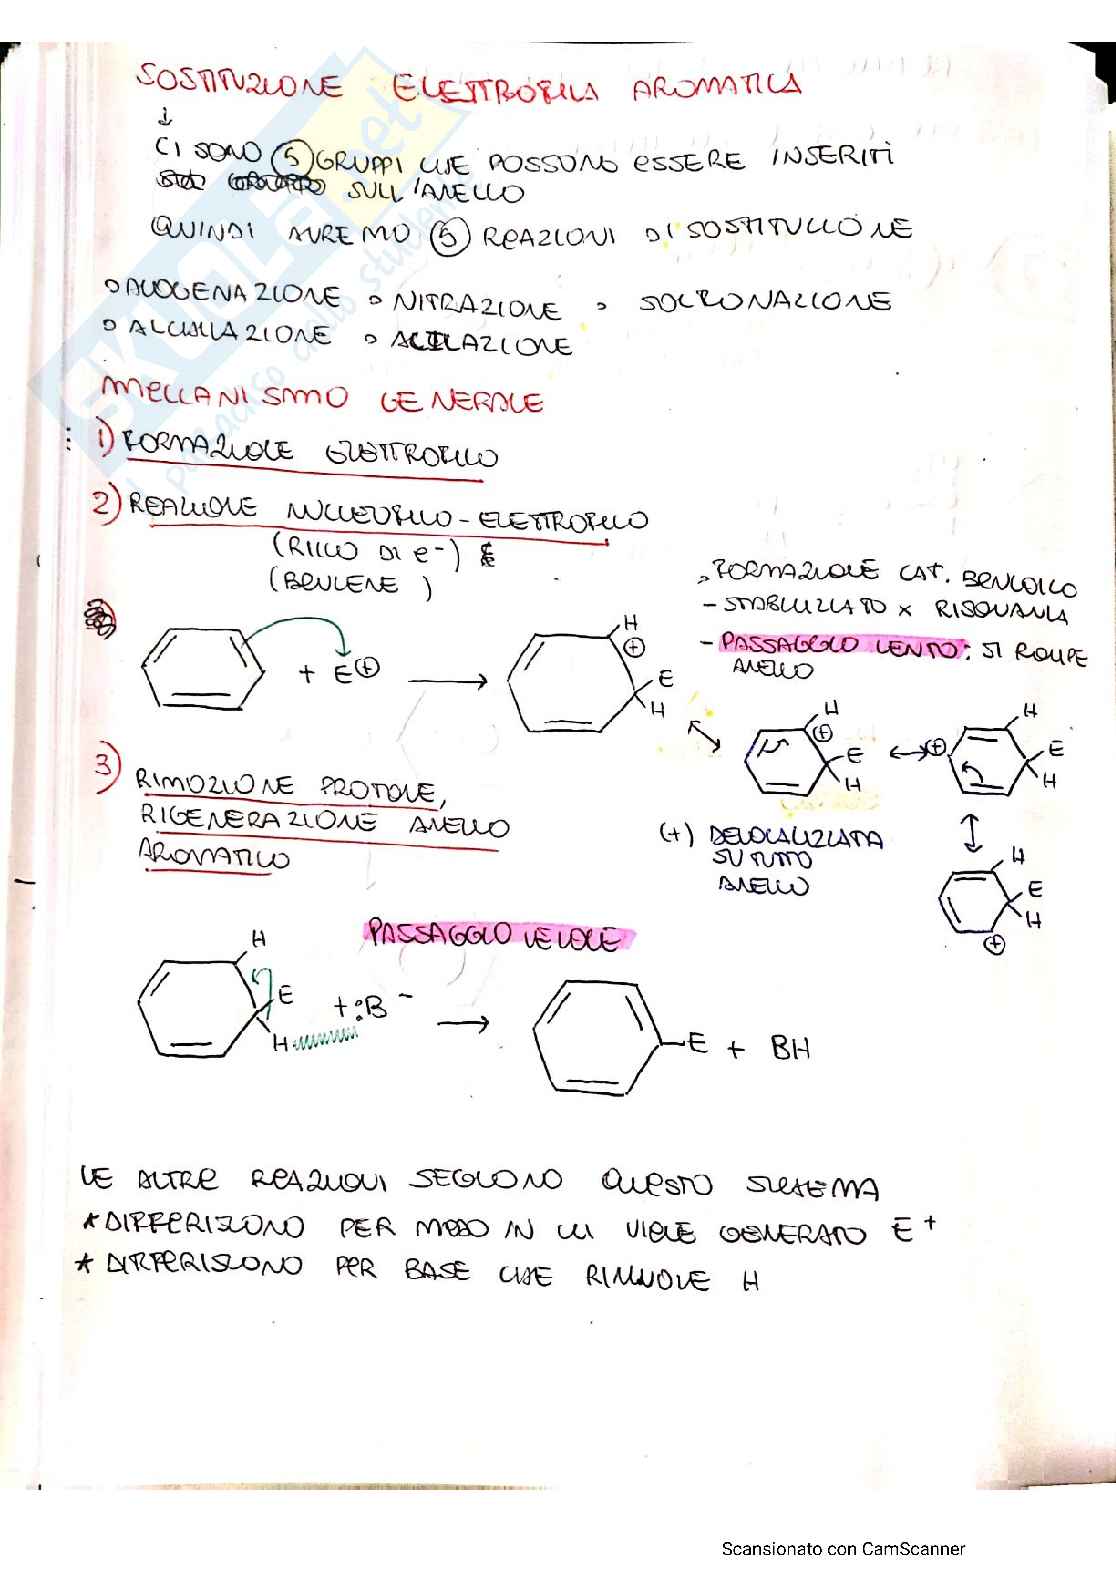 SOSTITUZIONE ELETTROFILA AROMATICA
↓
CI SONO 5 GRUPPI CHE POSSONO ESSERE INSERITI
SULL'ANELLO
QUINDI AVREMO 5 REAZIONI DI SOSTITUZIONE
° ALOGENAZIONE ° NITRAZIONE ° SOLFONAZIONE
° ALCHILAZIONE ° ACILAZIONE
MECCANISMO GENERALE
1) FORMAZIONE ELETTROFILO
2) REAZIONE NUCLEOFILO - ELETTROFILO
(RICCO DI e-) E
(BENZENE)
FORMAZIONE CAT. BENZOICO
- STABILIZZATO x RISONANZA
- PASSAGGIO LENTO: SI ROMPE
ANELLO
+ E⊕
H
⊕
E
H
H
⊕
E
H
⊕
H
E
H
(+) DELOCALIZZATA
SU TUTTO
ANELLO
H
E
H
⊕
3) RIMOZIONE PROTONE,
RIGENERAZIONE ANELLO
AROMATICO
PASSAGGIO VELOCE
H
E
H
+ :B-
E + BH
LE ALTRE REAZIONI SEGUONO QUESTO SISTEMA
* DIFFERISCONO PER MODO IN CUI VIENE GENERATO E+
* DIFFERISCONO PER BASE CHE RIMUOVE H
SKUOLA.net
il paradiso dello studente
Scansionato con CamScanner